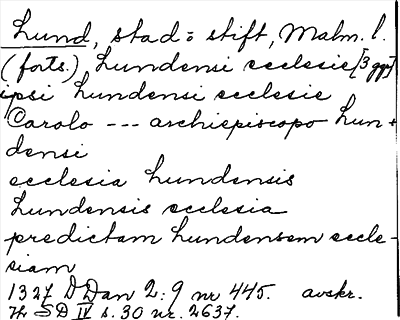 Lund, stad o stift, Malm. l.
(forts.) Lundensi ecclesie [3 ggr]
ipsi Lundensi ecclesie
Carolo --- archiepiscopo Lun-
densi
ecclesia Lundensis
Lundensis ecclesia
predictam Lundensem eccle-
siam
1327 DDan 2:9 nr 445. avskr.
Tr SD IV s. 30 nr. 2637.